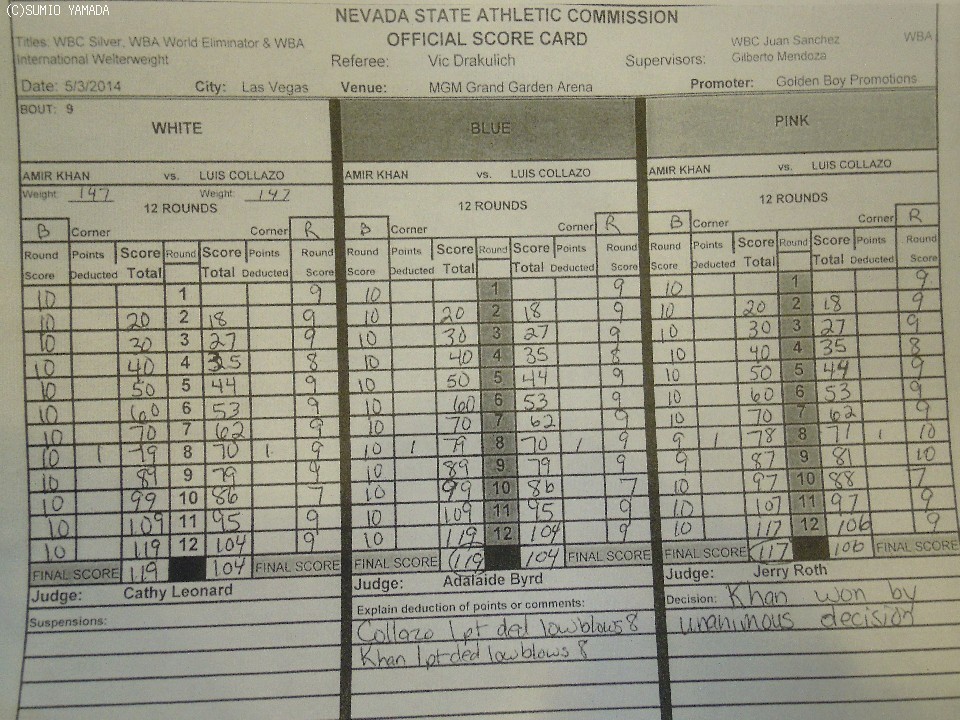 (C)SUMIO YAMADA
NEVADA STATE ATHLETIC COMMISSION
OFFICIAL SCORE CARD
Titles: WBC Silver, WBA World Eliminator & WBA
International Welterweight
Referee: Vic Drakulich
Supervisors: WBC Juan Sanchez WBA
Gilberto Mendoza
Date: 5/3/2014 City: Las Vegas Venue: MGM Grand Garden Arena Promoter: Golden Boy Promotions
BOUT: 9
WHITE
AMIR KHAN vs. LUIS COLLAZO
Weight: 147 Weight: 147
12 ROUNDS
B Corner Corner R
Round Points Score Round Score Points Round
Score Deducted Total Total Deducted Score
10 1 9
10 20 2 18 9
10 30 3 27 9
10 40 4 35 8
10 50 5 44 9
10 60 6 53 9
10 70 7 62 9
10 1 79 8 70 1 9
10 89 9 79 9
10 99 10 86 7
10 109 11 95 9
10 119 12 104 9
FINAL SCORE 119 104 FINAL SCORE
Judge: Cathy Leonard
Suspensions:
BLUE
AMIR KHAN vs. LUIS COLLAZO
12 ROUNDS
B Corner Corner R
Round Points Score Round Score Points Round
Score Deducted Total Total Deducted Score
10 1 9
10 20 2 18 9
10 30 3 27 9
10 40 4 35 8
10 50 5 44 9
10 60 6 53 9
10 70 7 62 9
10 1 79 8 70 1 9
10 89 9 79 9
10 99 10 86 7
10 109 11 95 9
10 119 12 104 9
FINAL SCORE 119 104 FINAL SCORE
Judge: Adalaide Byrd
Explain deduction of points or comments:
Collazo 1pt ded lowblows 8
Khan 1pt ded lowblows 8
PINK
AMIR KHAN vs. LUIS COLLAZO
12 ROUNDS
B Corner Corner R
Round Points Score Round Score Points Round
Score Deducted Total Total Deducted Score
10 1 9
10 20 2 18 9
10 30 3 27 9
10 40 4 35 8
10 50 5 44 9
10 60 6 53 9
10 70 7 62 9
9 1 78 8 71 1 10
9 87 9 81 10
10 97 10 88 7
10 107 11 97 9
10 117 12 106 9
FINAL SCORE 117 106 FINAL SCORE
Judge: Jerry Roth
Decision: Khan won by
unanimous decision